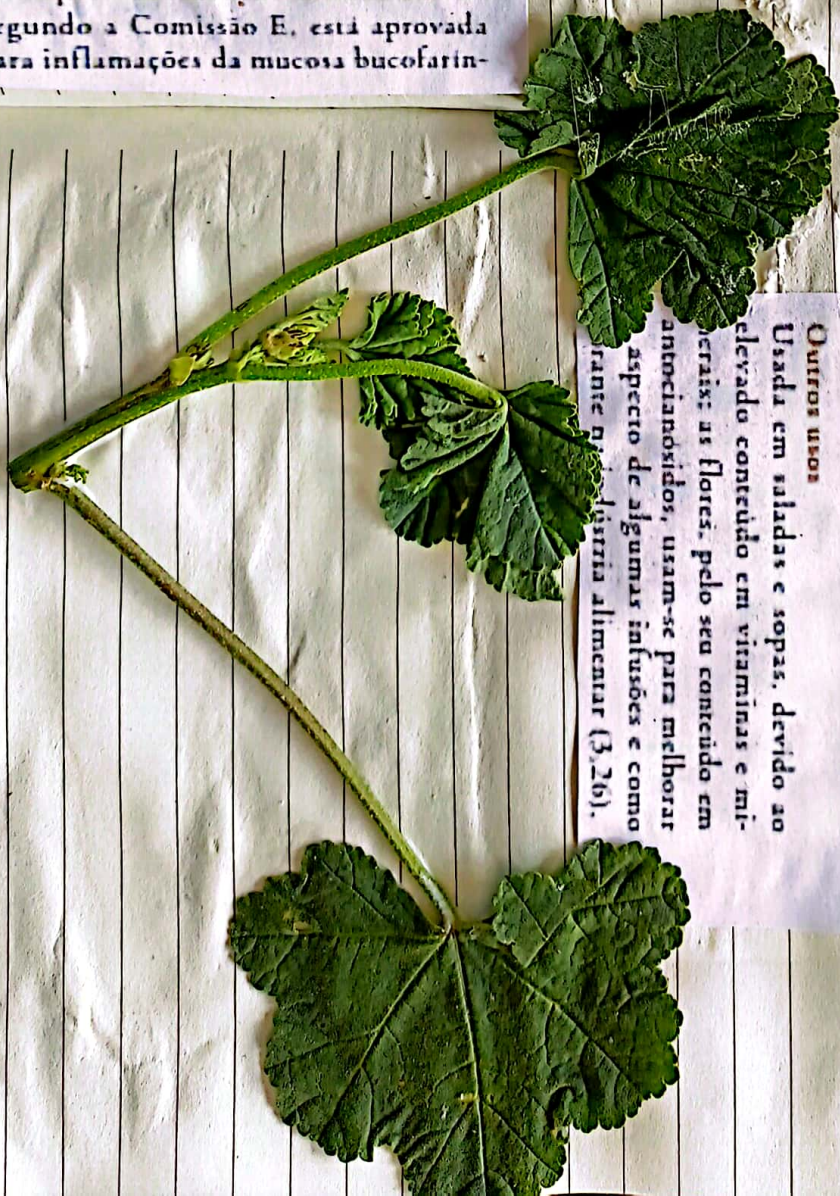 gundo a Comissão E, está aprovada
ara inflamações da mucosa bucofarín-
Outros usos
Usada em saladas e sopas, devido ao
elevado conteúdo em vitaminas e mi-
erais; as flores, pelo seu conteúdo em
antocianósidos, usam-se para melhorar
aspecto de algumas infusões e como
rante dústria alimentar (3,26).